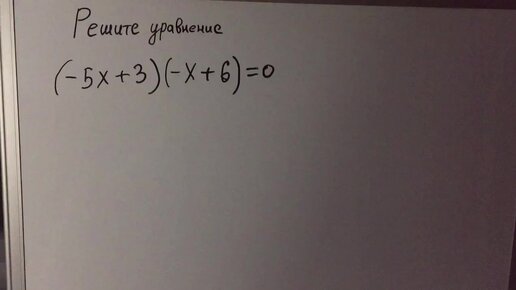 Решите уравнение
(-5x+3)(-x+6)=0